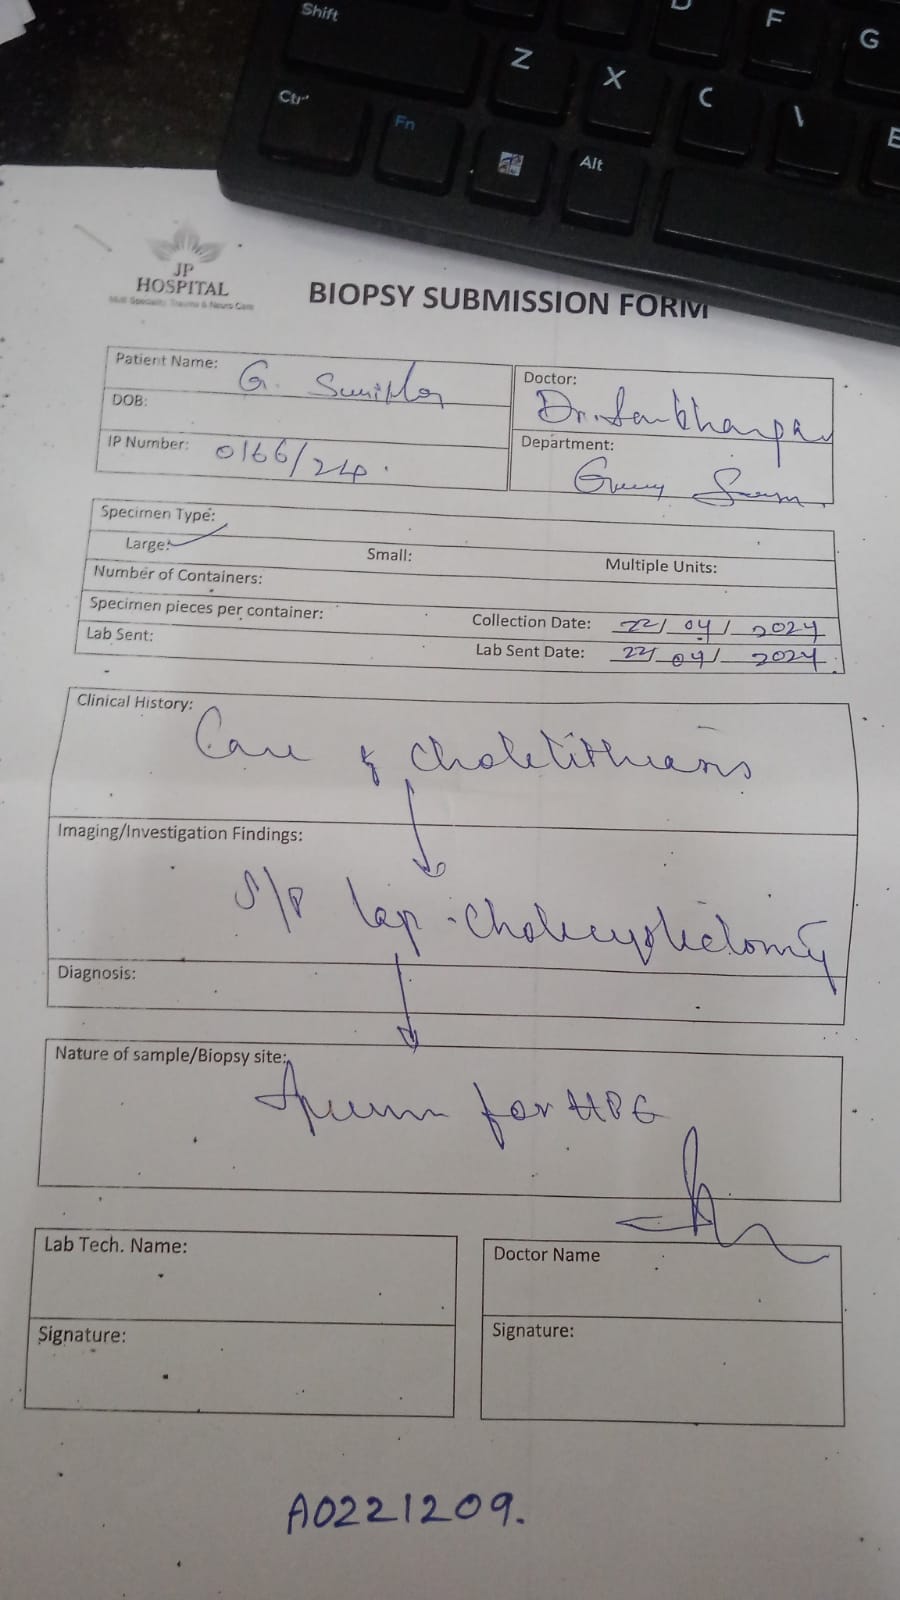 Shift
D
F
G
Z
X
C
Ctr
Fn
Alt
JP
HOSPITAL
Multi Speciality Trauma & Neuro Care
BIOPSY SUBMISSION FORM
Patient Name: G.
Doctor: Dr.
DOB:
IP Number: 0166/24.
Department:
Specimen Type:
Large: Small: Multiple Units:
Number of Containers:
Specimen pieces per container: Collection Date: 22/04/2024
Lab Sent: Lab Sent Date: 22/04/2024.
Clinical History:
Imaging/Investigation Findings:
S/P lap-cholecystectomy
Diagnosis:
Nature of sample/Biopsy site:
for HPE
Lab Tech. Name:
Doctor Name
Signature:
Signature:
A0221209.